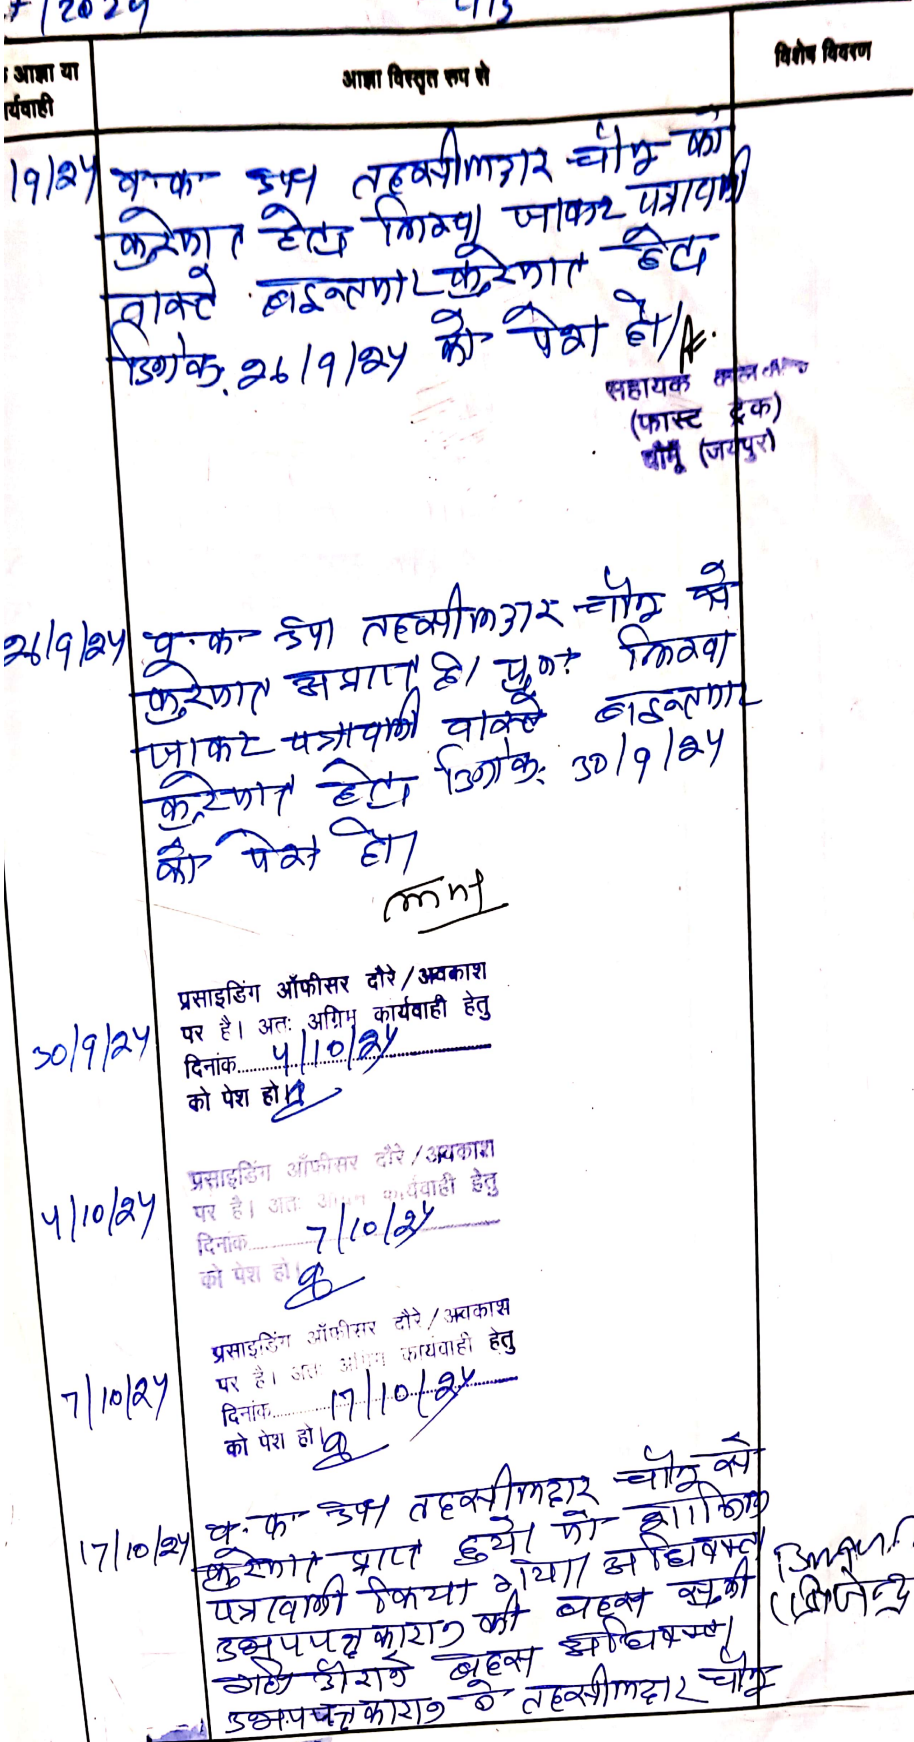 /2024
आज्ञा या
र्यवाही
आज्ञा विस्तृत रूप से
विशेष विवरण
/9/24 व.फ. उप. तहसीलदार चौमू को
कुरेजात हेतु लिखा जाकर पत्रावली
वास्ते बाइन्तजार कुरेजात हेतु
दिनांक 26/9/24 को पेश हो।
सहायक
(फास्ट ट्रेक)
चौमू (जयपुर)
26/9/24 व.फ. उप. तहसीलदार चौमू से
कुरेजात अप्राप्त है। पुनः लिखा
जाकर पत्रावली वास्ते बाइन्तजार
कुरेजात हेतु दिनांक: 30/9/24
को पेश हो।
30/9/24
प्रसाइडिंग ऑफीसर दौरे/अवकाश
पर है। अतः अग्रिम कार्यवाही हेतु
दिनांक 4/10/24
को पेश हो।
4/10/24
प्रसाइडिंग ऑफीसर दौरे/अवकाश
पर है। अतः अग्रिम कार्यवाही हेतु
दिनांक 7/10/24
को पेश हो।
7/10/24
प्रसाइडिंग ऑफीसर दौरे/अवकाश
पर है। अतः अग्रिम कार्यवाही हेतु
दिनांक 17/10/24
को पेश हो।
17/10/24 व.फ. उप. तहसीलदार चौमू से
कुरेजात प्राप्त हुये। जो शामिल
पत्रावली किया गया। अधिवक्ता
उभयपक्षकारान की बहस सुनी
गई। दौराने बहस अधिवक्ता
उभयपक्षकारान ने तहसीलदार चौमू